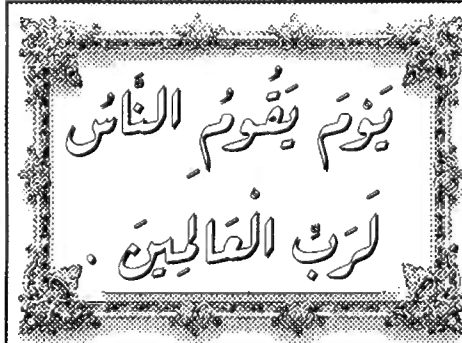 يَوْمَ يَقُومُ النَّاسُ
لِرَبِّ الْعَالَمِينَ .